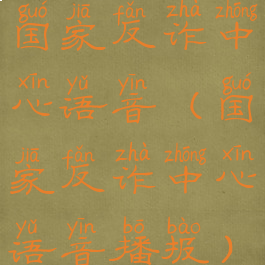 guó jiā fǎn zhà zhōng
国家反诈中
xīn yǔ yīn guó
心语音（国
jiā fǎn zhà zhōng xīn
家反诈中心
yǔ yīn bō bào
语音播报）